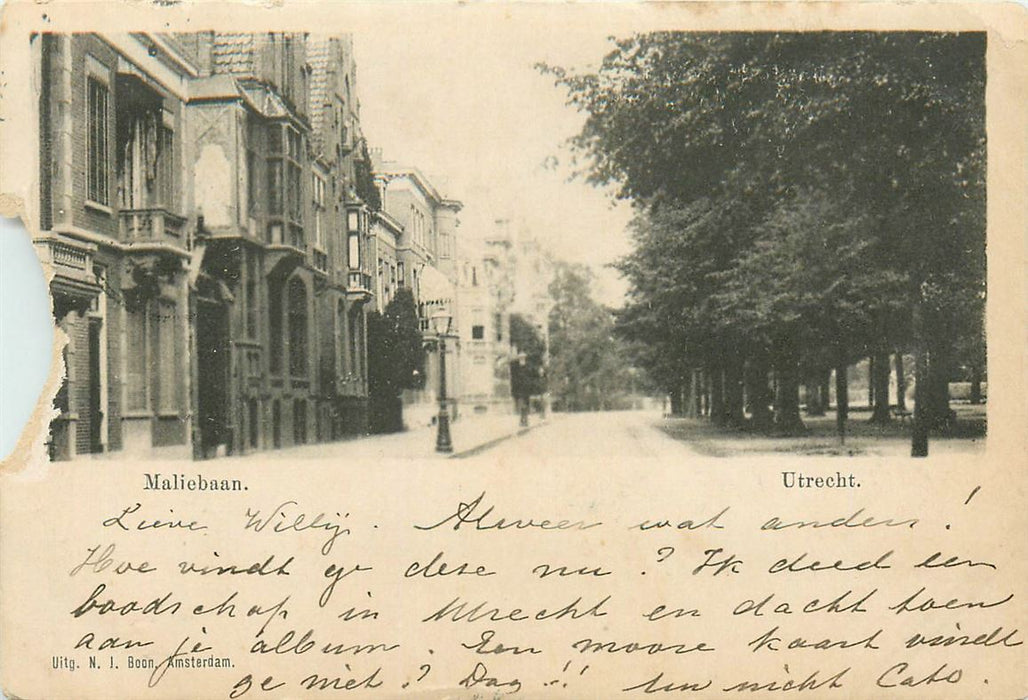 Maliebaan. Utrecht.
Lieve Willij. Alweer wat anders!
Hoe vindt ge deze nu? Ik deed een
boodschap in Utrecht en dacht toen
aan je album. Een mooie kaart vindt
Uitg. N. J. Boon, Amsterdam.
ge niet? Dag!! nicht Cato.